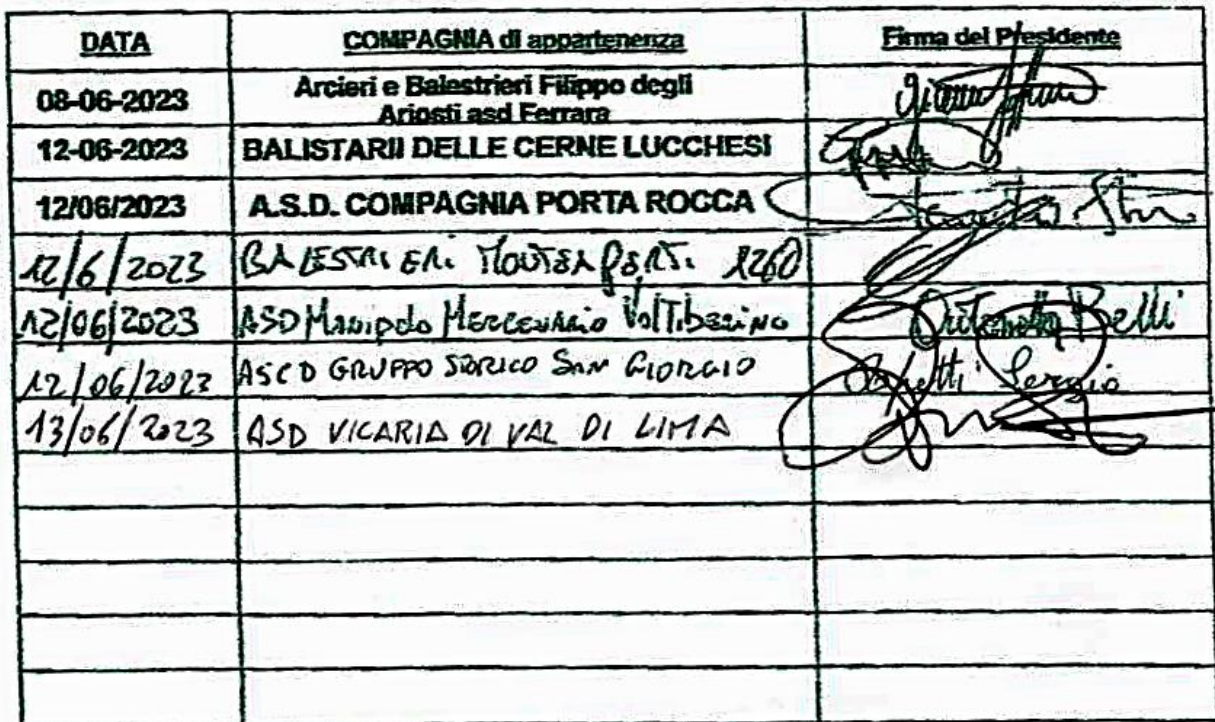 DATA COMPAGNIA di appartenenza Firma del Presidente
08-06-2023 Arcieri e Balestrieri Filippo degli
Ariosti asd Ferrara
12-06-2023 BALISTARII DELLE CERNE LUCCHESI
12/06/2023 A.S.D. COMPAGNIA PORTA ROCCA
12/6/2023 BALESTRIERI MONTEAPERTI 1260
12/06/2023 ASD Manipolo Mercenario Valtiberino Antonella Belli
12/06/2023 ASCD GRUPPO STORICO SAN GIORGIO Sergio
13/06/2023 ASD VICARIA DI VAL DI LIMA